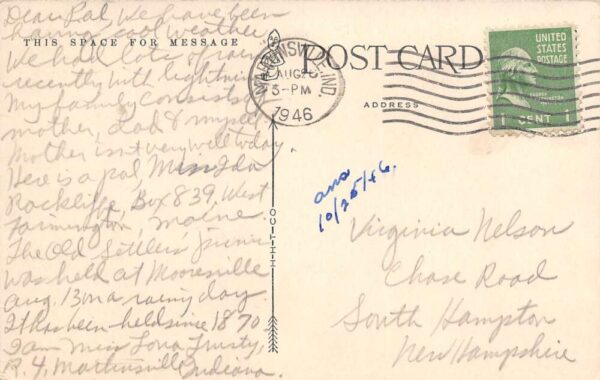 Dear Pal, We have been
having cool weather
THIS SPACE FOR MESSAGE
We had lots of rain
recently with lightning
My family consists of
mother, dad & myself
Mother isn't very well today.
Here is a pal, Miss Ida
Rockliffe, Box 839, West
Farmington, Maine.
The Old Settlers picnic
was held at Mooresville
Aug. 13 on a rainy day.
It has been held since 1870
I am Miss Lona Trusty,
R. 4, Martinsville, Indiana.
H-H-T-CO
POST CARD
MARTINSVILLE, IND
AUG 20
5-PM
1946
ADDRESS
UNITED
STATES
POSTAGE
1 CENT 1
ans
10/25/46.
Virginia Nelson
Chase Road
South Hampton
New Hampshire